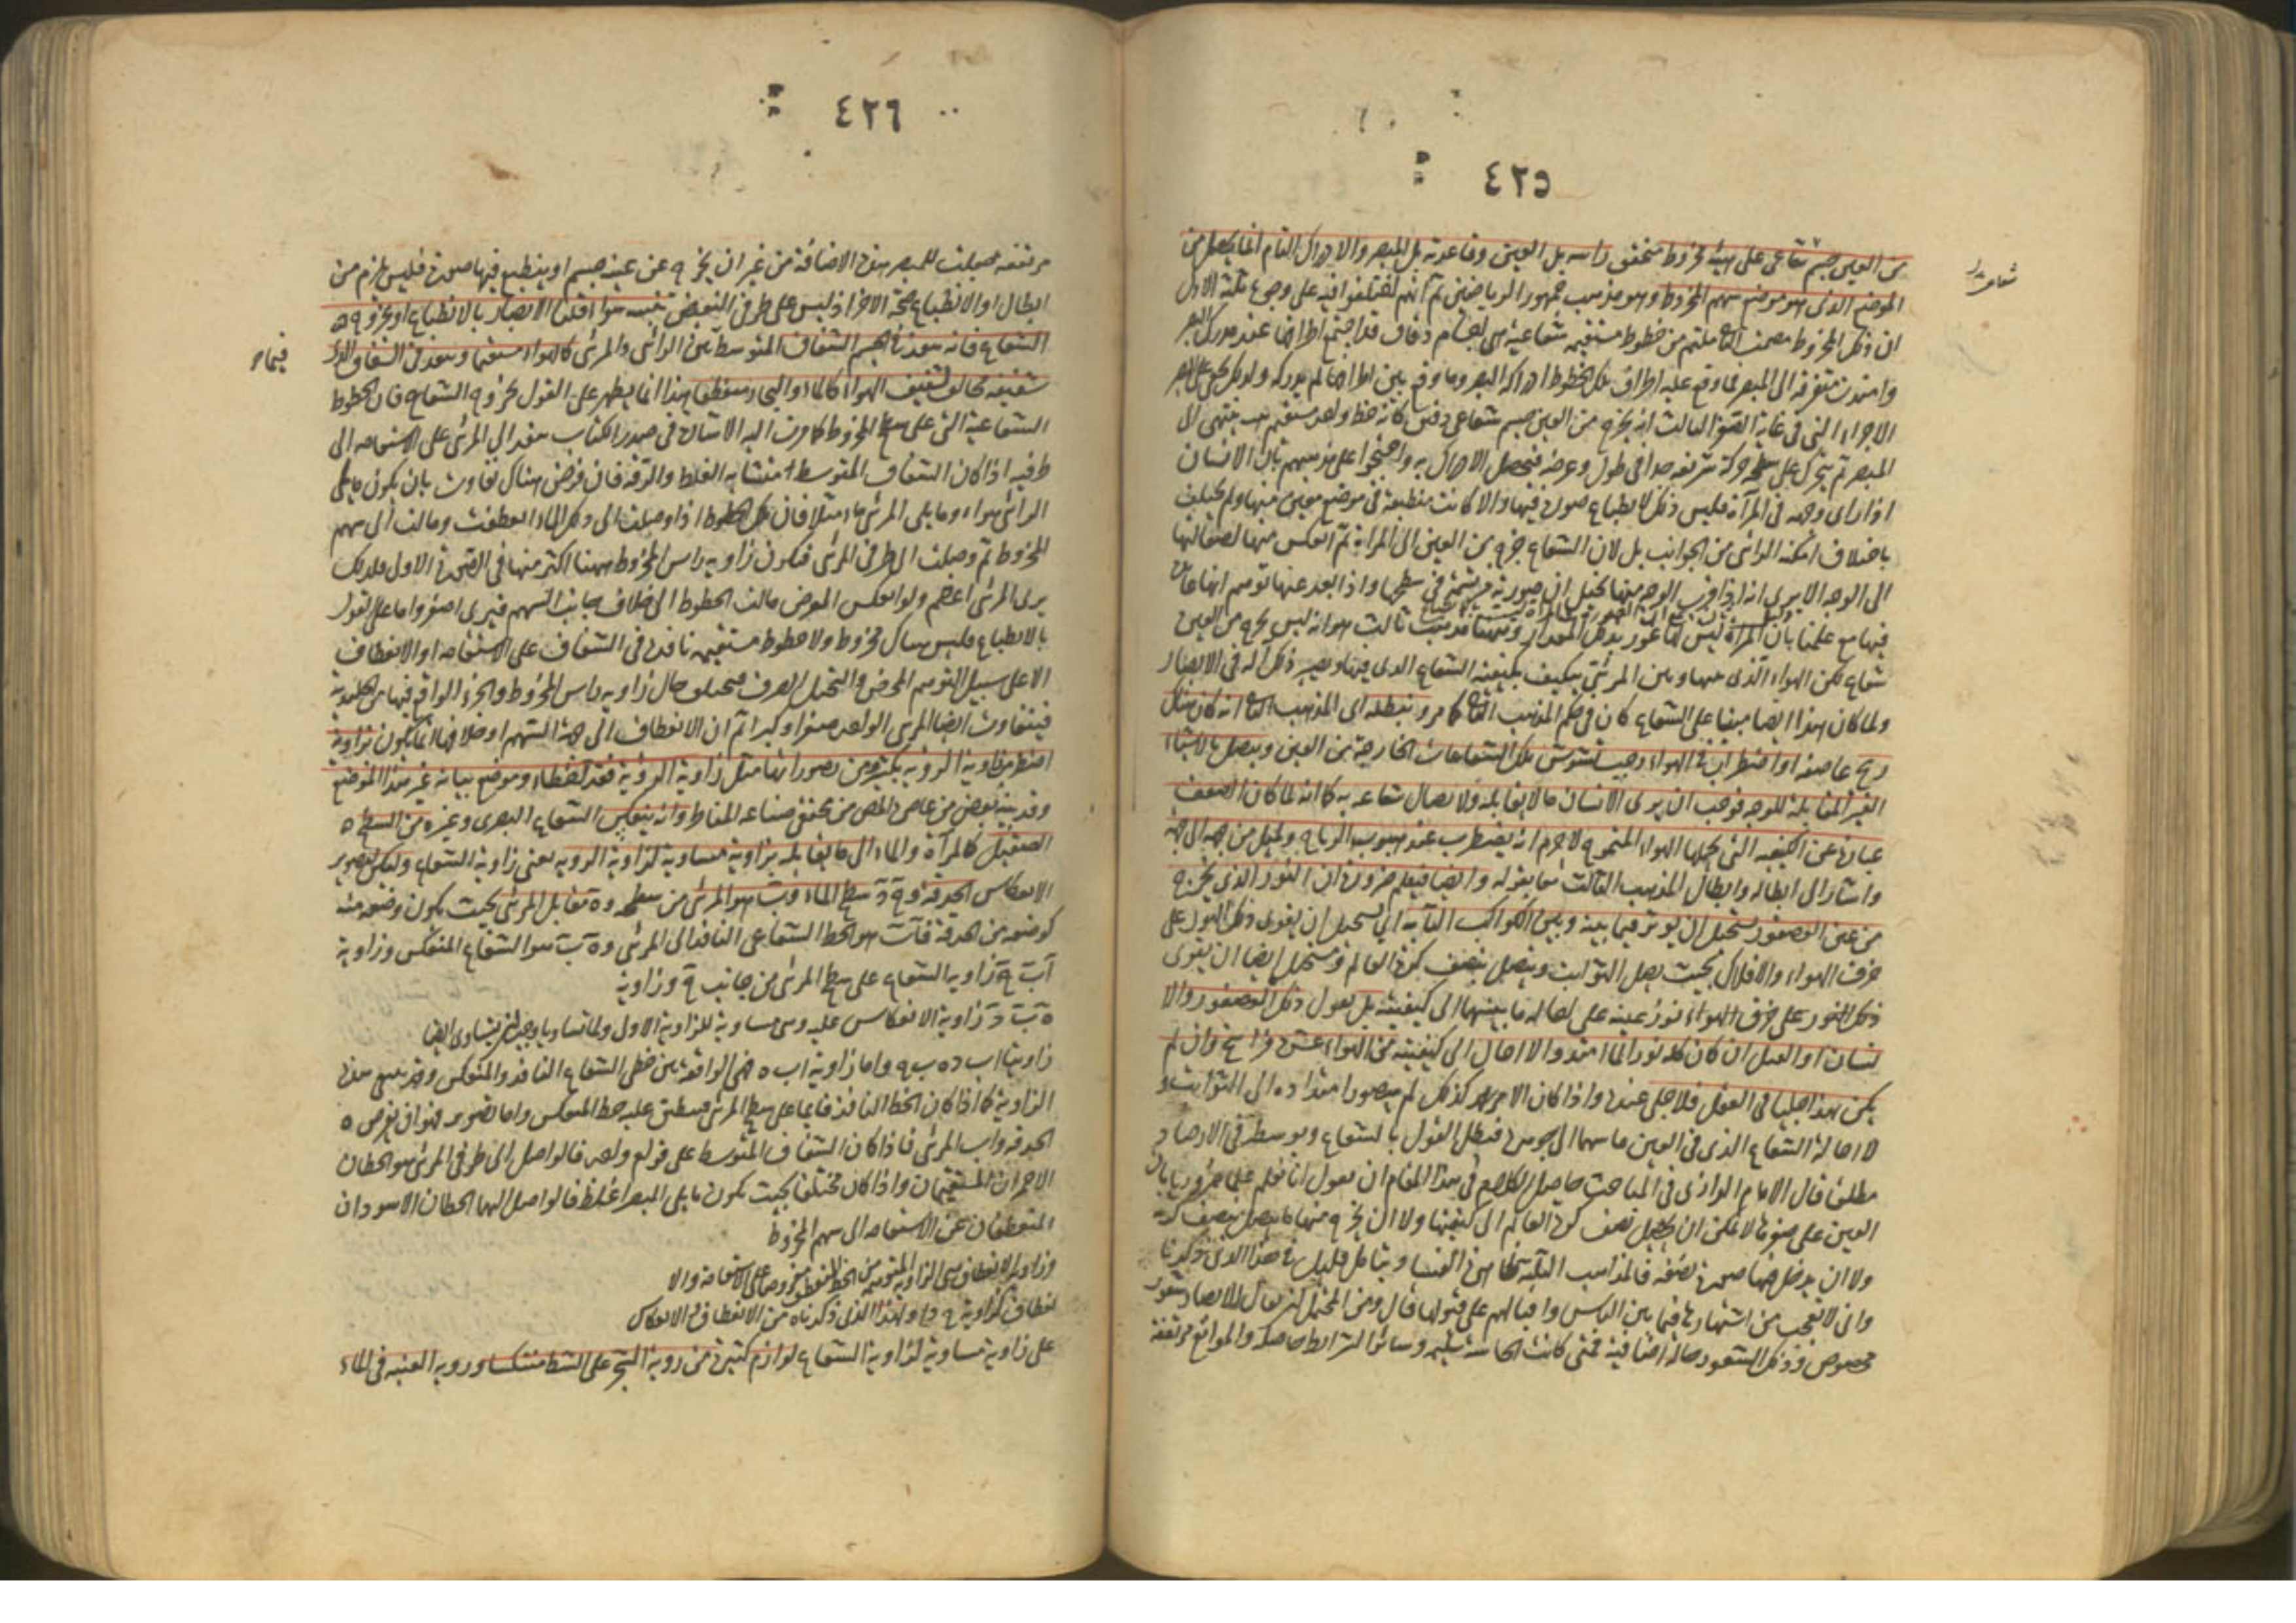 ٤٢٥
من العين جسم شعاعي على هيئة مخروط متحقق راسه يلي العين وقاعدته يلي المبصر والادراك التام انما يحصل من
الموضع الذي هو موضع سهم المخروط وهو مذهب جمهور الرياضيين ثم انهم اختلفوا فيه على وجوه ثلثة الاول
ان ذلك المخروط مصمت ملتئم من خطوط مستقيمة شعاعية هي اجسام دقاق قد اجتمع اطرافها عند مركز البصر
وامتدت متفرقة الى المبصر فما وقع عليه اطراف تلك الخطوط ادركه البصر وما وقع بين اطرافها لم يدركه ولذلك يخفى على البصر
الاجزاء التي في غاية الصغر الثالث انه يخرج من العين جسم شعاعي دقيق كانه خط واحد مستقيم ينتهي الى
المبصر ثم يتحرك على سطحه حركة سريعة جدا في طول وعرضه فيحصل الادراك به واحتجوا على مذهبهم بان الانسان
اذا راى وجهه في المرآة فليس ذلك لانطباع صورة فيها والا كانت منطبعة في موضع معين منها ولم يختلف
باختلاف امكنة الرائي من الجوانب بل لان الشعاع خرج من العين الى المرآة ثم انعكس منها لصقالتها
الى الوجه الا يرى انه اذا قرب الوجه منها يخيل ان صورته مرتسمة في سطحها واذا بعد عنها توهم انها غائرة
فيها مع علمنا بان المرآة ليس لها غور بذلك المقدار وههنا مذهب ثالث هو انه ليس يخرج من العين
شعاع لكن الهواء الذي بينها وبين المرئي يتكيف بكيفية الشعاع الذي فيها ويصير ذلك آلة في الابصار
ولما كان هذا ايضا مبنيا على الشعاع كان في حكم المذهب كما مر ويبطله اي المذهب انه كان هناك
ريح عاصفة او اضطراب في الهواء وجب تشوش تلك الشعاعات الخارجة من العين ويتصل بالاشياء
الغير المقابلة للوجه فوجب ان يرى الانسان ما لا يقابله ولاتصال شعاعه به كما انه لما كان الصوت
عبارة عن الكيفية التي يحملها الهواء المتموج لا جرم انه يضطرب عند هبوب الرياح ويميل من جهة الى جهة
واشار الى ابطاله وابطال المذهب الثالث معا بقوله وايضا فيعلم ضرورة ان النور الذي يخرج
من عين العصفور يستحيل ان يوثر فيما بينه وبين الكواكب الثابتة اي يستحيل ان يقوى ذلك النور على
خرق الهواء والافلاك بحيث يصل الثوابت ويتصل بنصف كرة العالم ومستحيل ايضا ان يقوى
ذلك النور على خرق الهواء نور عينه على احالة ما بينهما الى كيفيته بل نقول ذلك العصفور والا
انسان او الفيل ان كان كله نورا لما امتد والا احال الى كيفيته من الهواء عشرة فراسخ وان لم
يكن هذا جليا في العقل فلا جلي عنده واذا كان الامر كذلك لم يتصور امتداده الى الثوابت و
لا احالة الشعاع الذي في العين ما بينهما الى جوهره فبطل القول بالشعاع وتوسطه في الابصار
مطلقا قال الامام الرازي في المباحث حاصل الكلام في هذا المقام ان نقول انا نعلم علما ضروريا بان
العين على صغرها لا يمكن ان يحيل نصف كرة العالم الى كيفيتها ولا ان يخرج منها ما يتصل بنصف كرته
ولا ان يدخل فيها صورة نصفه فالمذاهب الثلثة ظاهرة الفساد بتامل قليل في هذا الذي ذكرنا
واني لا تعجب من اشتهارها فيما بين الناس واقبالهم على قبولها قال ومن المحتمل ان يقال الابصار شعور
مخصوص وذلك الشعور حالة اضافية فمتى كانت الحاسة سليمة وسائر الشرائط حاصلة والموانع مرتفعة
٤٢٦
مرتفعة حصلت للمبصر هذه الاضافة من غير ان يخرج عن عينه جسم او ينطبع فيها صورة فليس يلزم من
ابطال او الانطباع صحة الاخر اذ ليس على طرفي النقيض تنبيه سوا قلنا الابصار بالانطباع او بخروج
الشعاع فانه ينفذ في الجسم الشفاف المتوسط بين الرائي والمرئي كالهواء مستقيما وينفذ في الشفاف الذي
شفيفه مخالف لشفيف الهواء كالماء والبخار منعطفا هذا انما يظهر على القول بخروج الشعاع فان الخطوط
الشعاعية التي على سطح المخروط كما مرت اليه الاشارة في صدر الكتاب ينفذ الى المرئي على الاستقامة الى
طرفيه اذا كان الشفاف المتوسط متشابه الغلظ والرقة فان فرض هناك تفاوت بان يكون ما يلي
الرائي هواء وما يلي المرئي ماء مثلا فان تلك الخطوط اذا وصلت الى ذلك الماء انعطفت ومالت الى سهم
المخروط ثم وصلت الى طرفي المرئي فيكون زاوية راس المخروط ههنا اكثر منها في الصورة الاولى فلذلك
يرى المرئي اعظم ولو انعكس الفرض مالت الخطوط الى خلاف جانب السهم فيرى اصغر واما على القول
بالانطباع فليس هناك مخروط ولا خطوط مستقيمة نافذة في الشفاف على الاستقامة او الانعطاف
الا على سبيل التوهم المحض والتخيل الصرف فيختلف حال زاوية راس المخروط والجزء الواقع فيها من الجليدية
فيتفاوت ايضا المرئي الواحد صغرا وكبرا ثم ان الانعطاف الى جهة السهم او خلافها انما يكون بزاوية
اصغر من زاوية الروية بكثير ومن تصورانها مثل زاوية الروية فقد اخطاء وموضع بيانه غير هذا الموضع
وقد بينه بعض من عاصر المص من محققي صناعة المناظر وانه ينعكس الشعاع البصري وغيره من السطح
الصقيل كالمرآة والماء الى ما يقابله بزاوية مساوية لزاوية الروية يعني زاوية الشعاع وليكن لتصوير
الانعكاس الحدقة و ج د سطح الماء و ب هو المرئي من سطحه و ه مقابل المرئي بحيث يكون وضعه منه
كوضعه من الحدقة ف ا ب هو الخط الشعاعي النافذ الى المرئي و ه ب هو الشعاع المنعكس وزاوية
ا ب ج زاوية الشعاع على سطح المرئي من جانب ج وزاوية
ه ب د زاوية الانعكاس عليه وهي مساوية للزاوية الاولى ولما تساويا وجب ان يتساوى ايضا
زاويتا اب د ه ب ج واما زاوية اب ه فهي الواقعة بين خطي الشعاع النافذ والمنعكس وقد ينعدم هذه
الزاوية كما اذا كان الخط النافذ قائما على سطح المرئي فينطبق عليه خط المنعكس واما تصوير فهو ان يفرض ه
الحدقة و اب المرئي فاذا كان الشفاف المتوسط على قوام واحد فالواصل الى طرفي المرئي هو الخطان
الاحمران المستقيمان واذا كان مختلفا بحيث يكون ما يلي المبصر اغلظ فالواصل اليها الخطان الاسودان
المنعطفان عن الاستقامة الى سهم المخروط
وزاوية الانعطاف هي الزاوية المتوهمة من الخط المنعطف مفروضا على الاستقامة والا
نعطاف كزاوية ج د ا ولهذا الذي ذكرناه من الانعطاف او الانعكاس
على زاوية مساوية لزاوية الشعاع لوازم كثيرة من روية الشجر على الشط منتكسا وروية العنبة في الماء